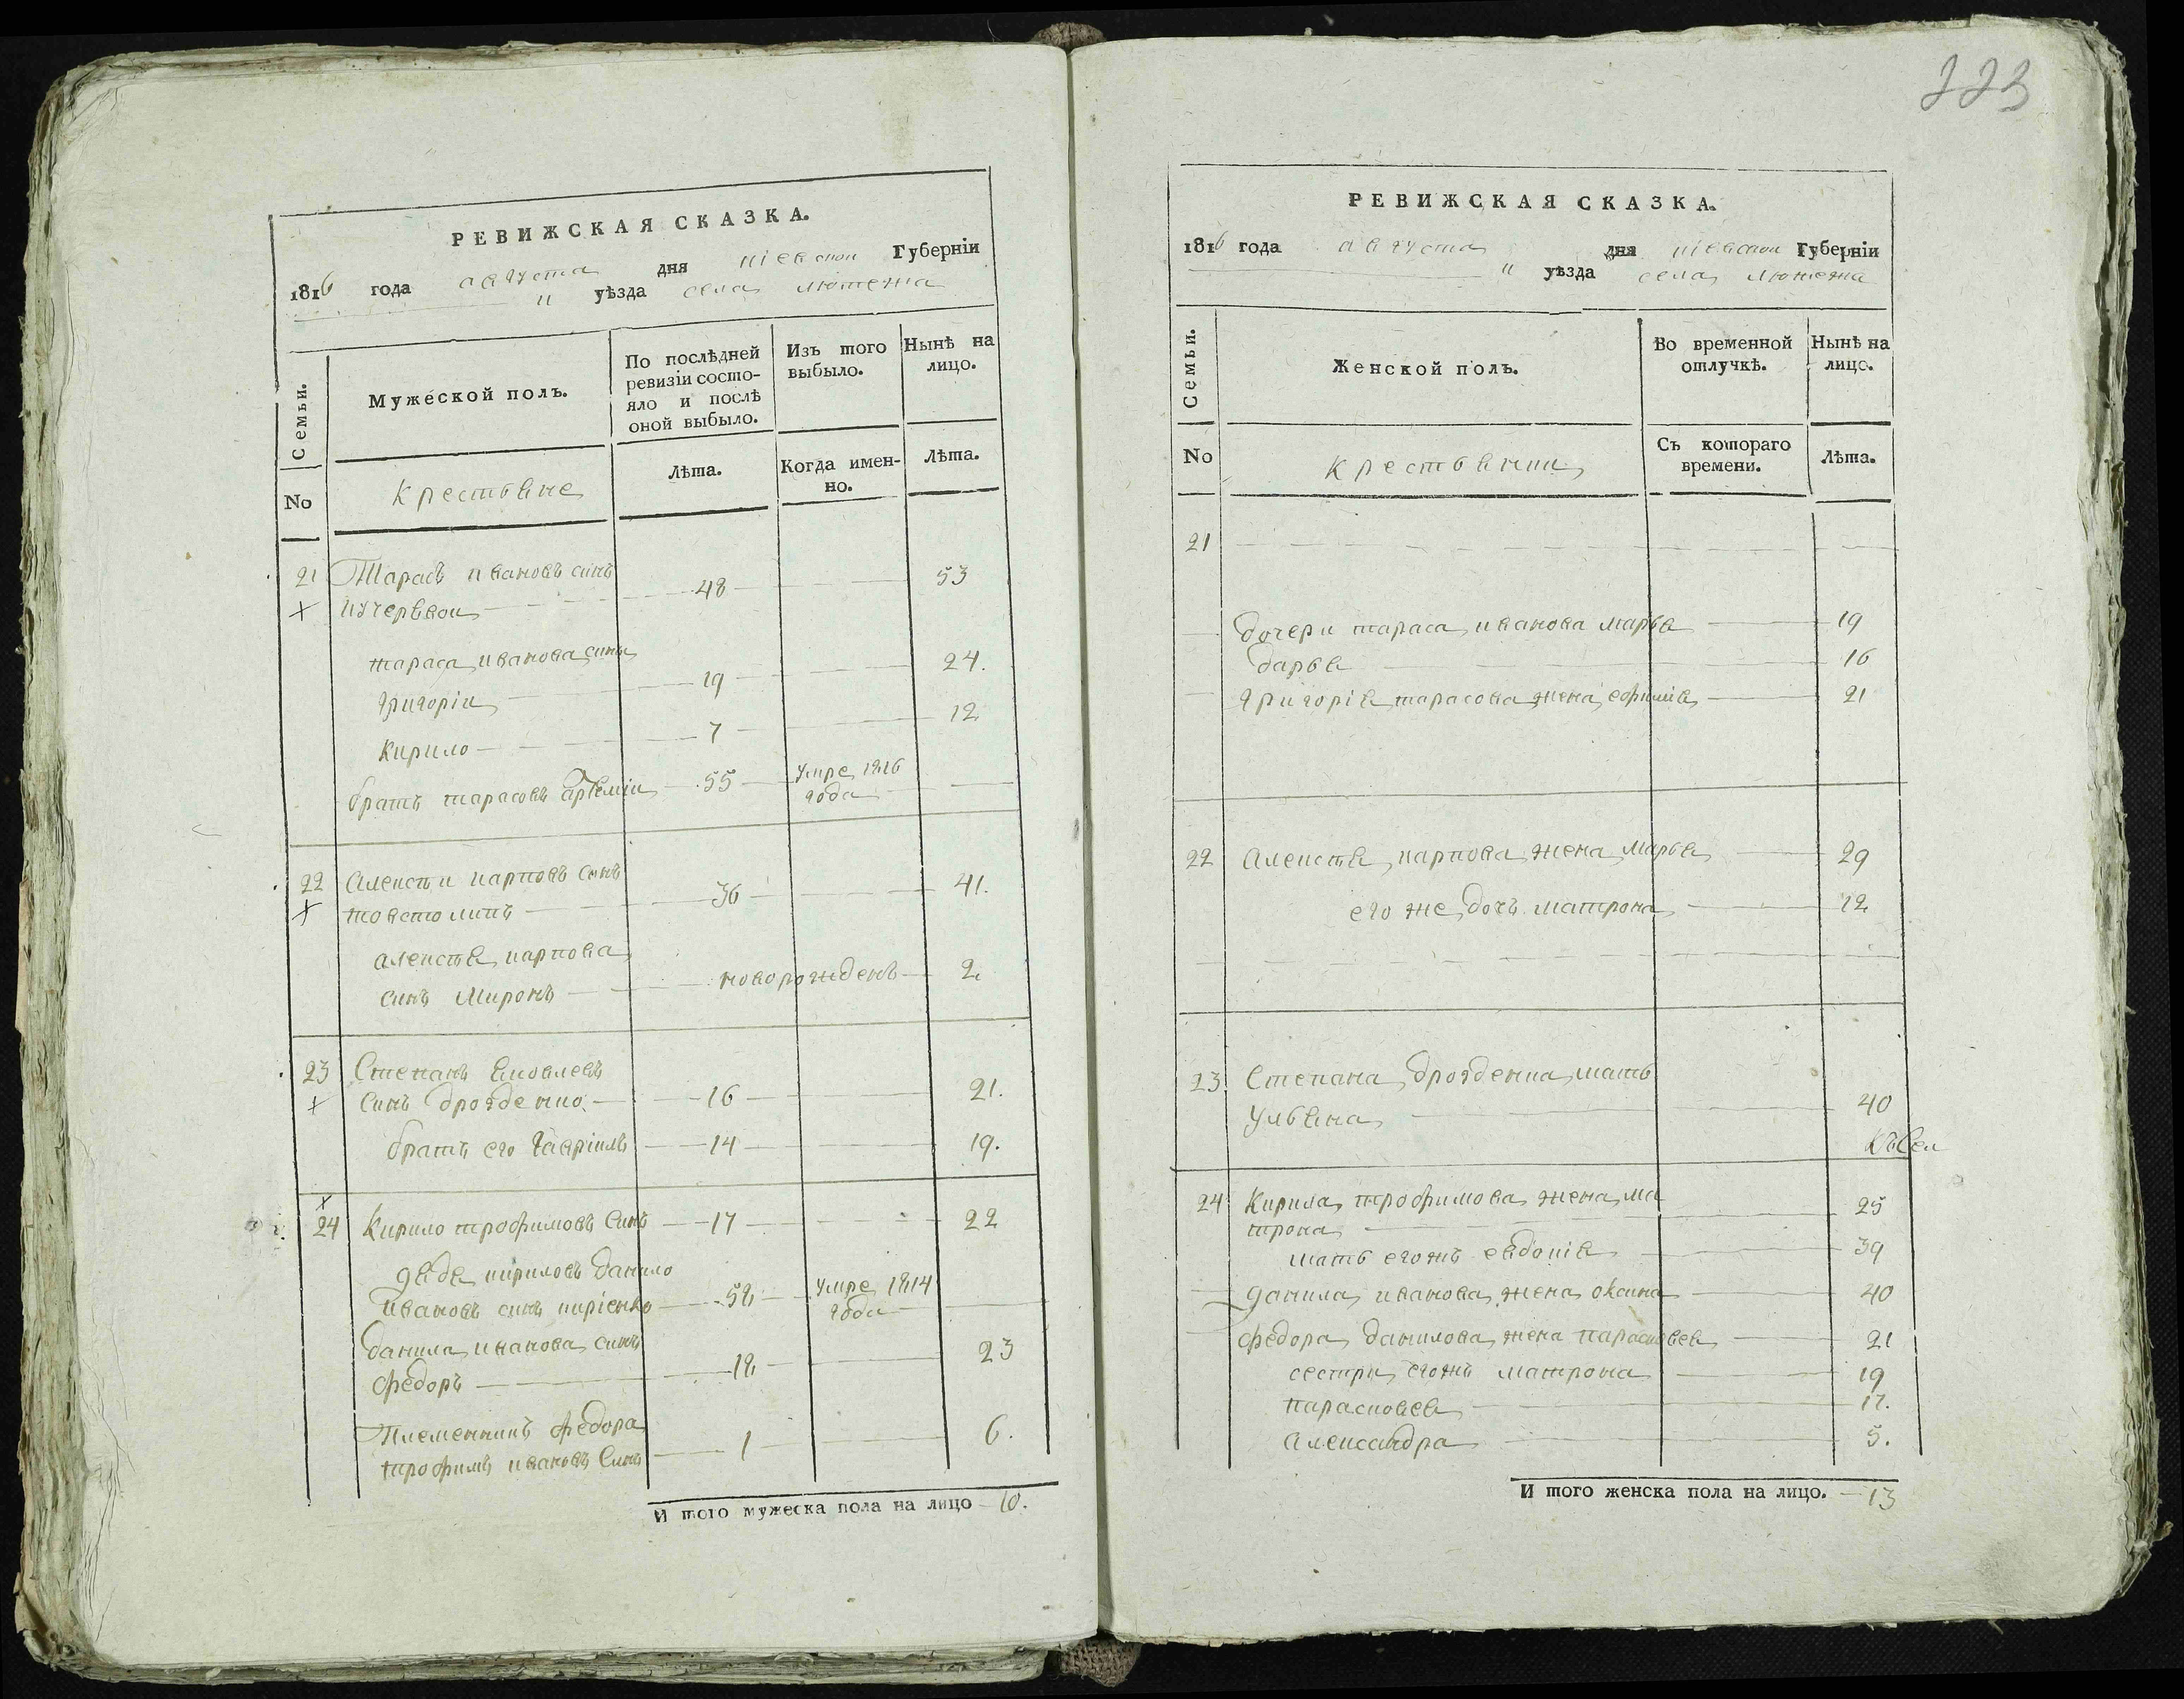 223
РЕВИЖСКАЯ СКАЗКА.
1816 года августа дня кіевскои Губерніи
" уѣзда села лютежа
Семьи.
Мужеской полъ.
По послѣдней ревизіи состо-
яло и послѣ оной выбыло.
Изъ того выбыло.
Нынѣ на лицо.
No
крестьяне
Лѣта.
Когда имен-
но.
Лѣта.
21 Тарасъ ивановъ синъ
кучервои 48 53
тараса иванова сины
григоріи 19 24.
кирило 7 12
братъ тарасовъ артеміи 55 Умре 1816 года
22 Алексѣи карповъ синъ
товстолитъ 36 41.
алексѣя карпова
синъ Миронъ новорожденъ 2
23 Степанъ яковлевъ
синъ дрозденко 16 21.
братъ его гавріилъ 14 19.
24 Кирило трофимовъ синъ 17 22
дядя кириловъ данило
ивановъ синъ кирienко 52 Умре 1814 года
данила иванова синъ
федоръ 18 23
племенникъ федора
трофимъ ивановъ синъ 1 6.
И того мужеска пола на лицо 10.
РЕВИЖСКАЯ СКАЗКА.
1816 года августа дня кіевскои Губерніи
" уѣзда села лютежа
Семьи.
Женской полъ.
Во временной отлучкѣ.
Нынѣ на лицо.
No
крестьянки
Съ котораго времени.
Лѣта.
21
дочери тараса иванова марья 19
дарья 16
григорія тарасова жена ефимія 21
22 Алексѣя карпова жена марья 29
его же дочь матрона 12
23 Степана дрозденка мать
ульяна 40
24 Кирила трофимова жена ма
трона 25
мать егожъ евдокія 39
данила иванова жена оксина 40
федора данилова жена парасковея 21
сестри егожъ матрона 19
парасковея 17.
Александра 5.
И того женска пола на лицо. 13